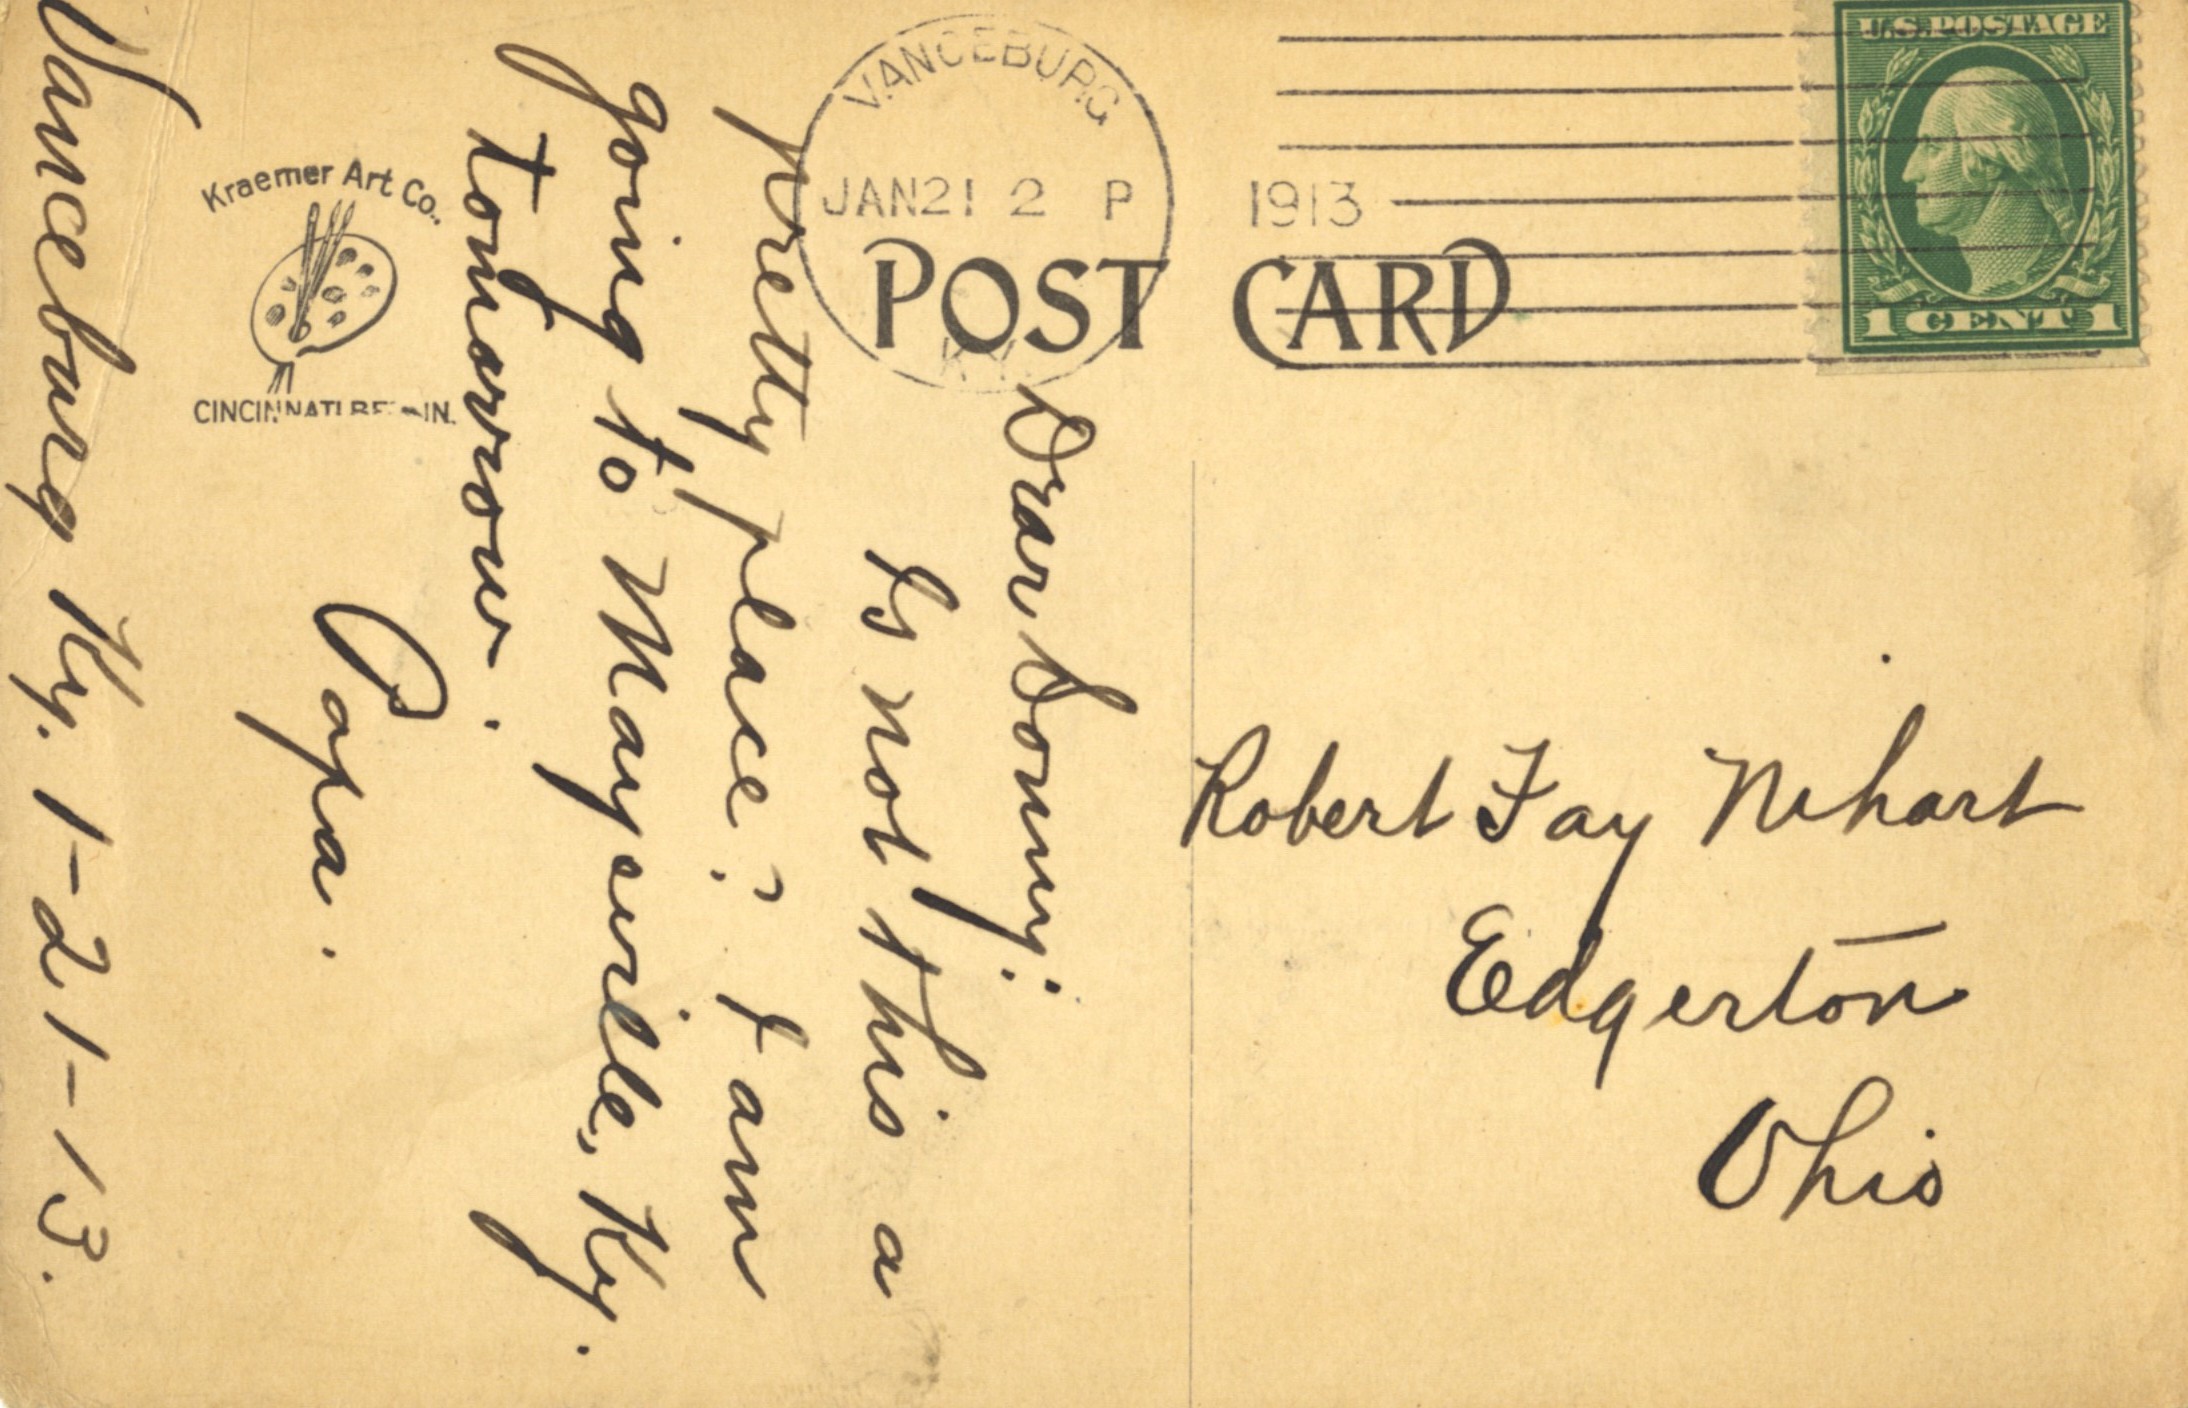 VANCEBURG
JAN 21 2 P 1913
KY.
U.S. POSTAGE
1 CENT 1
POST CARD
Kraemer Art Co.,
CINCINNATI BERLIN.
Dear Sonny:
Is not this a
pretty place? I am
going to Maysville, Ky.
tomorrow.
Papa.
Vanceburg Ky. 1-21-13.
Robert Fay Nihart
Edgerton
Ohio